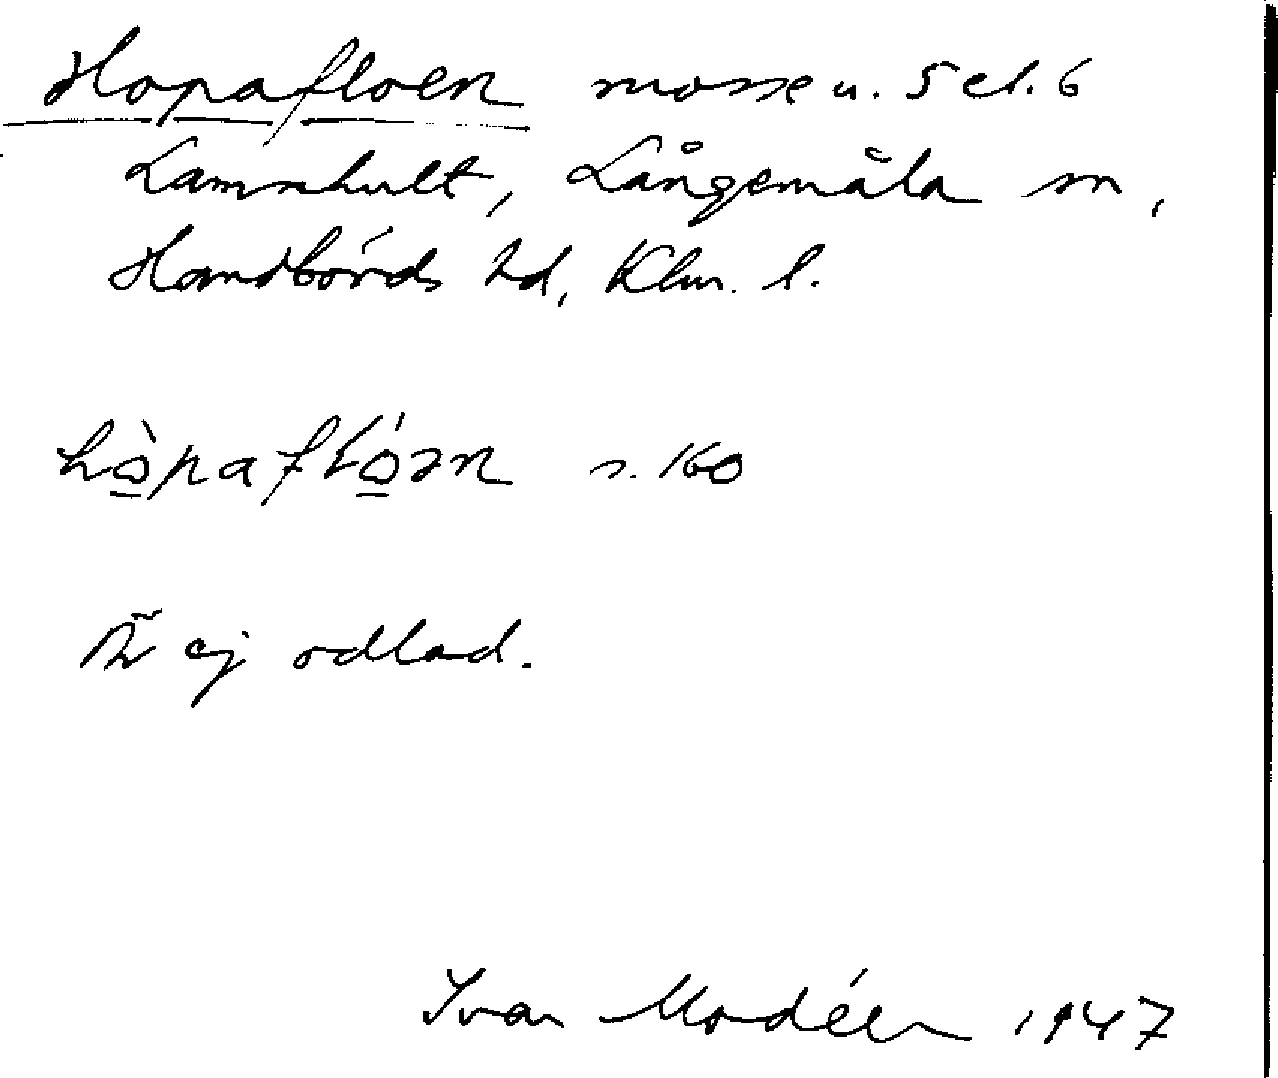 Hopafloen mosse u. 5 el. 6
Lamnhult, Långemåla sn,
Handbörds hd, Klm. l.
hò̲pafló̲ən s. 160
Är ej odlad.
Ivan Modéer 1947